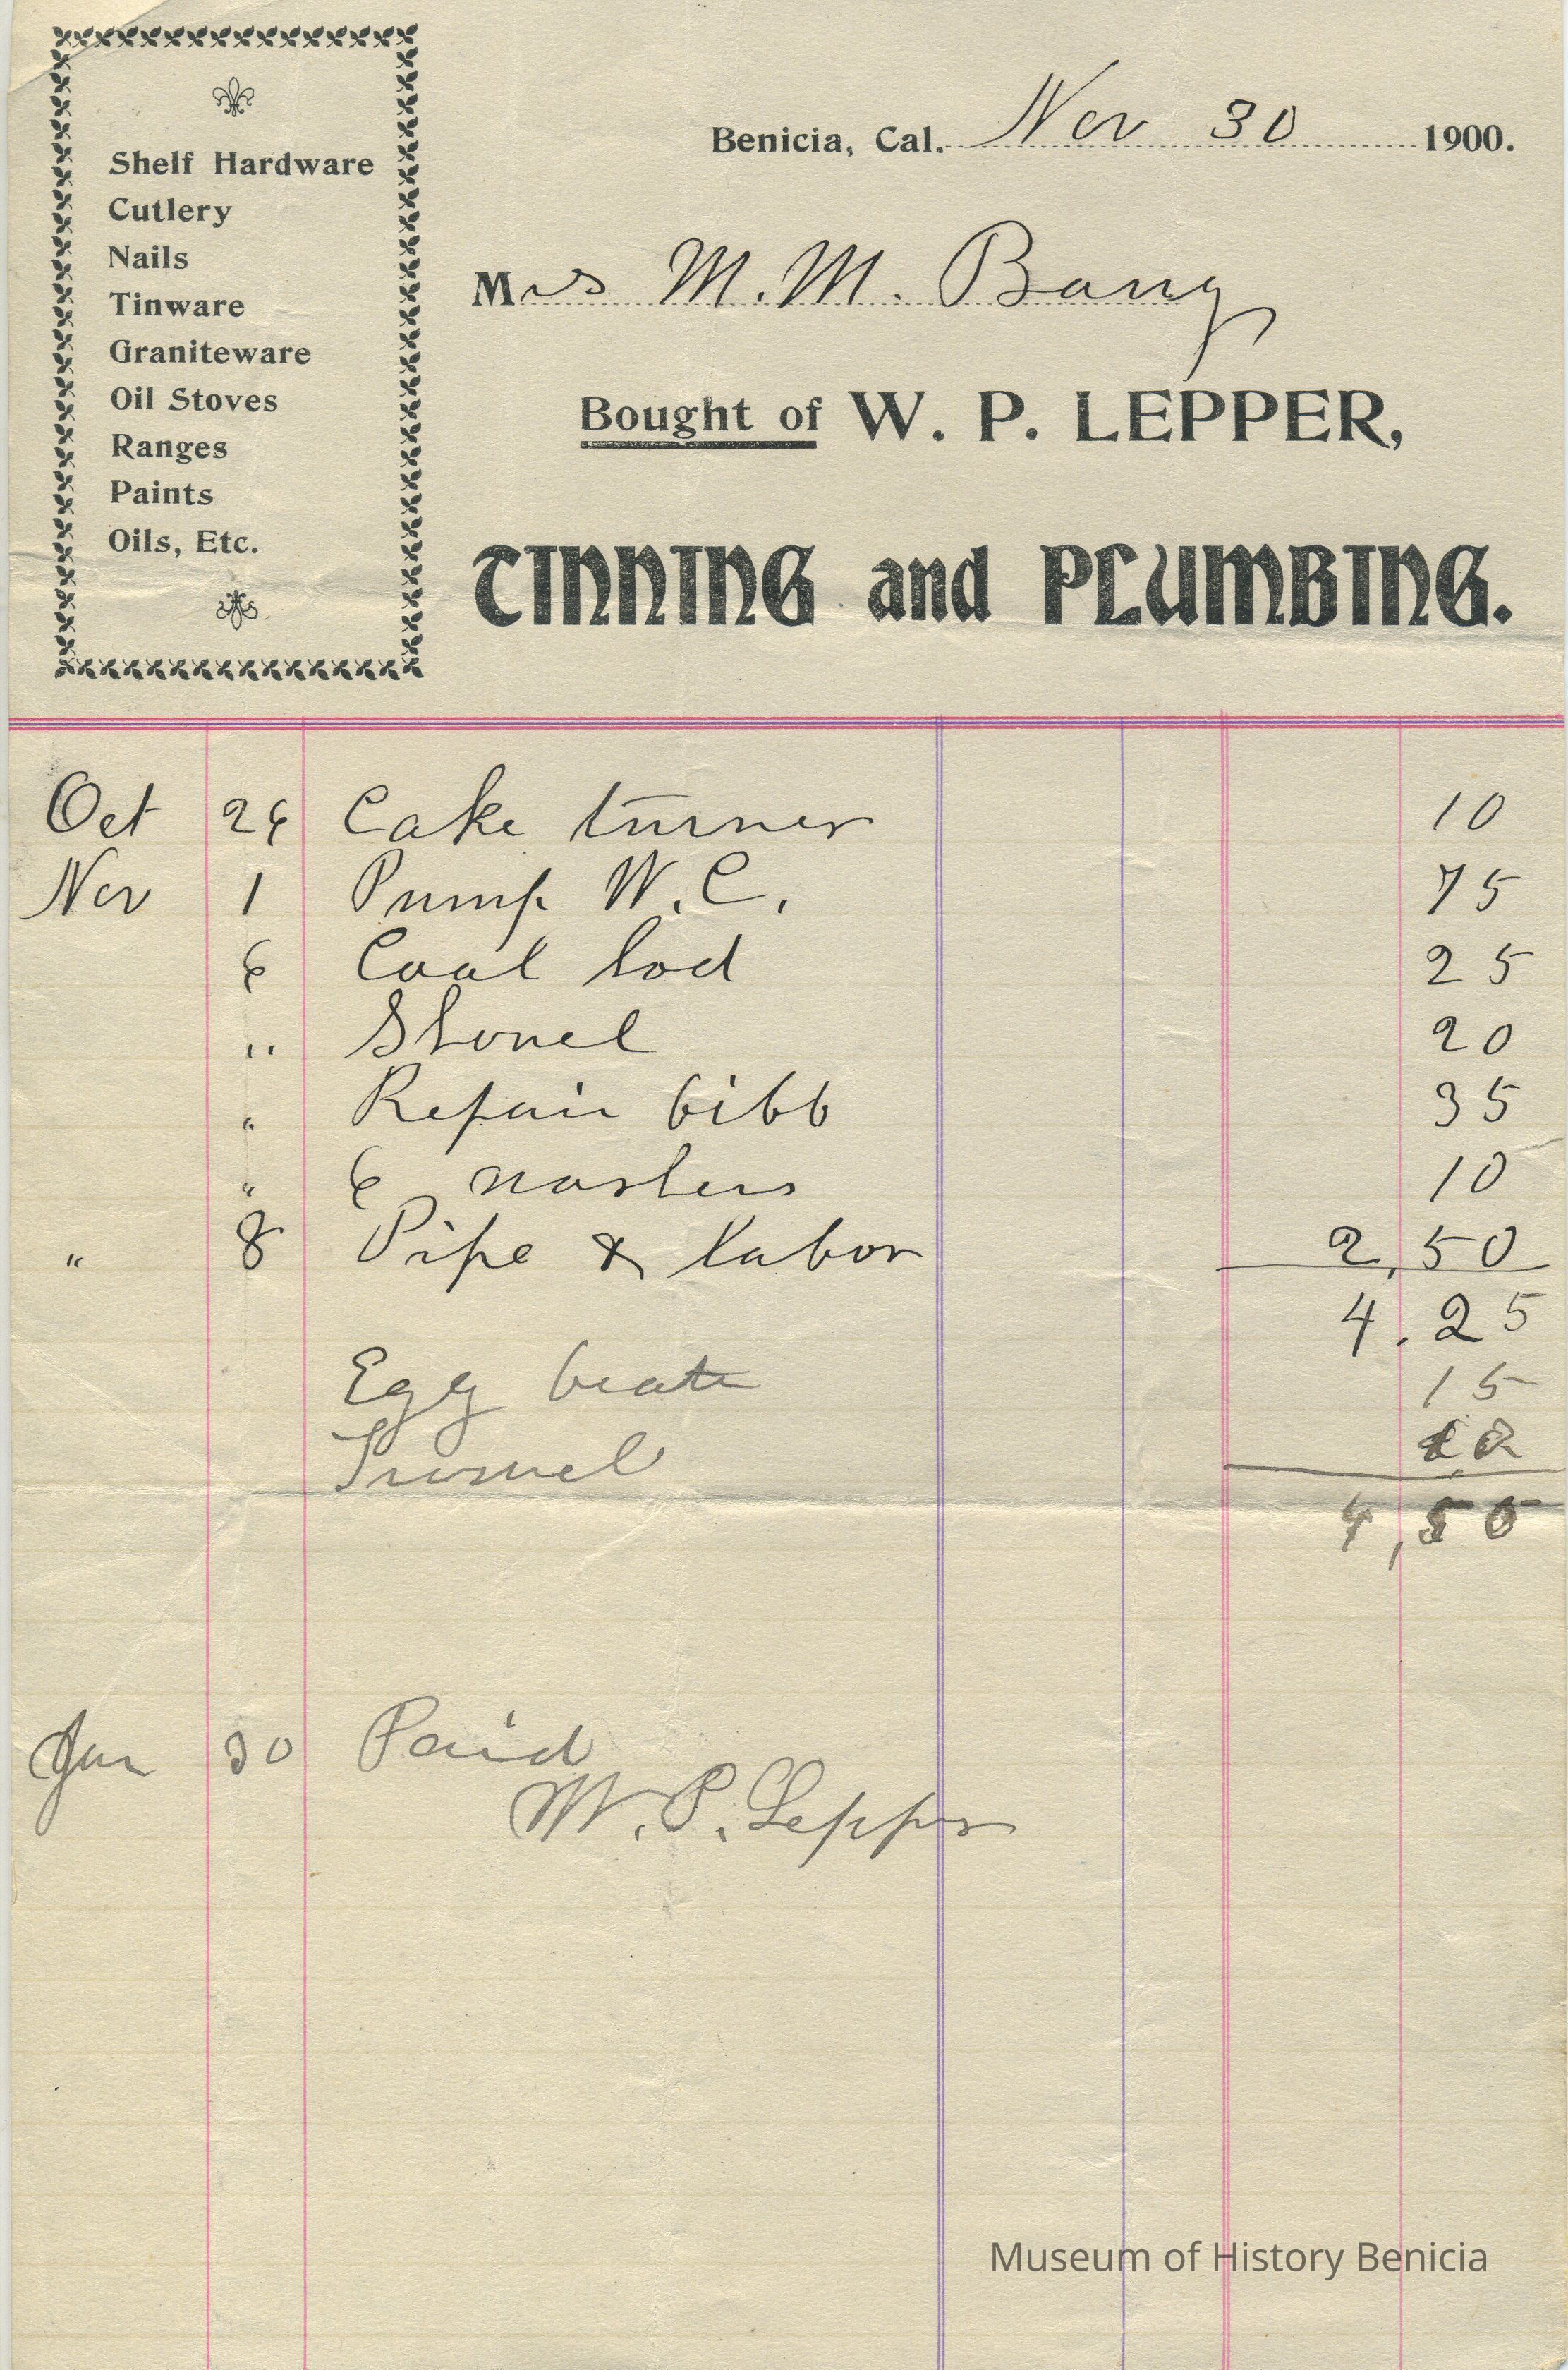 Shelf Hardware
Cutlery
Nails
Tinware
Graniteware
Oil Stoves
Ranges
Paints
Oils, Etc.
Benicia, Cal. Nov 30 1900.
Mrs M. M. Bang
Bought of W. P. LEPPER,
TINNING and PLUMBING.
Oct 26 Cake turner 10
Nov 1 Pump W. C. 75
6 Coal hod 25
" Shovel 20
" Repair bibb 35
" 6 washers 10
" 8 Pipe & labor 2,50
4.25
Egg beater 15
Trowel 10
4,50
Jan 30 Paid
W. P. Lepper
Museum of History Benicia